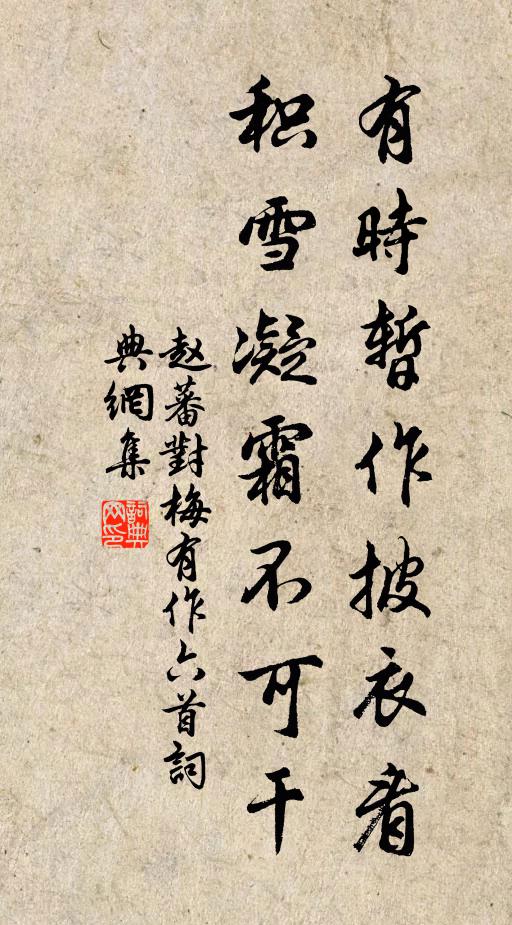 有時暫作披衣看
积雪凝霜不可干
赵蕃對梅有作六首詞
典網集
詞典網印